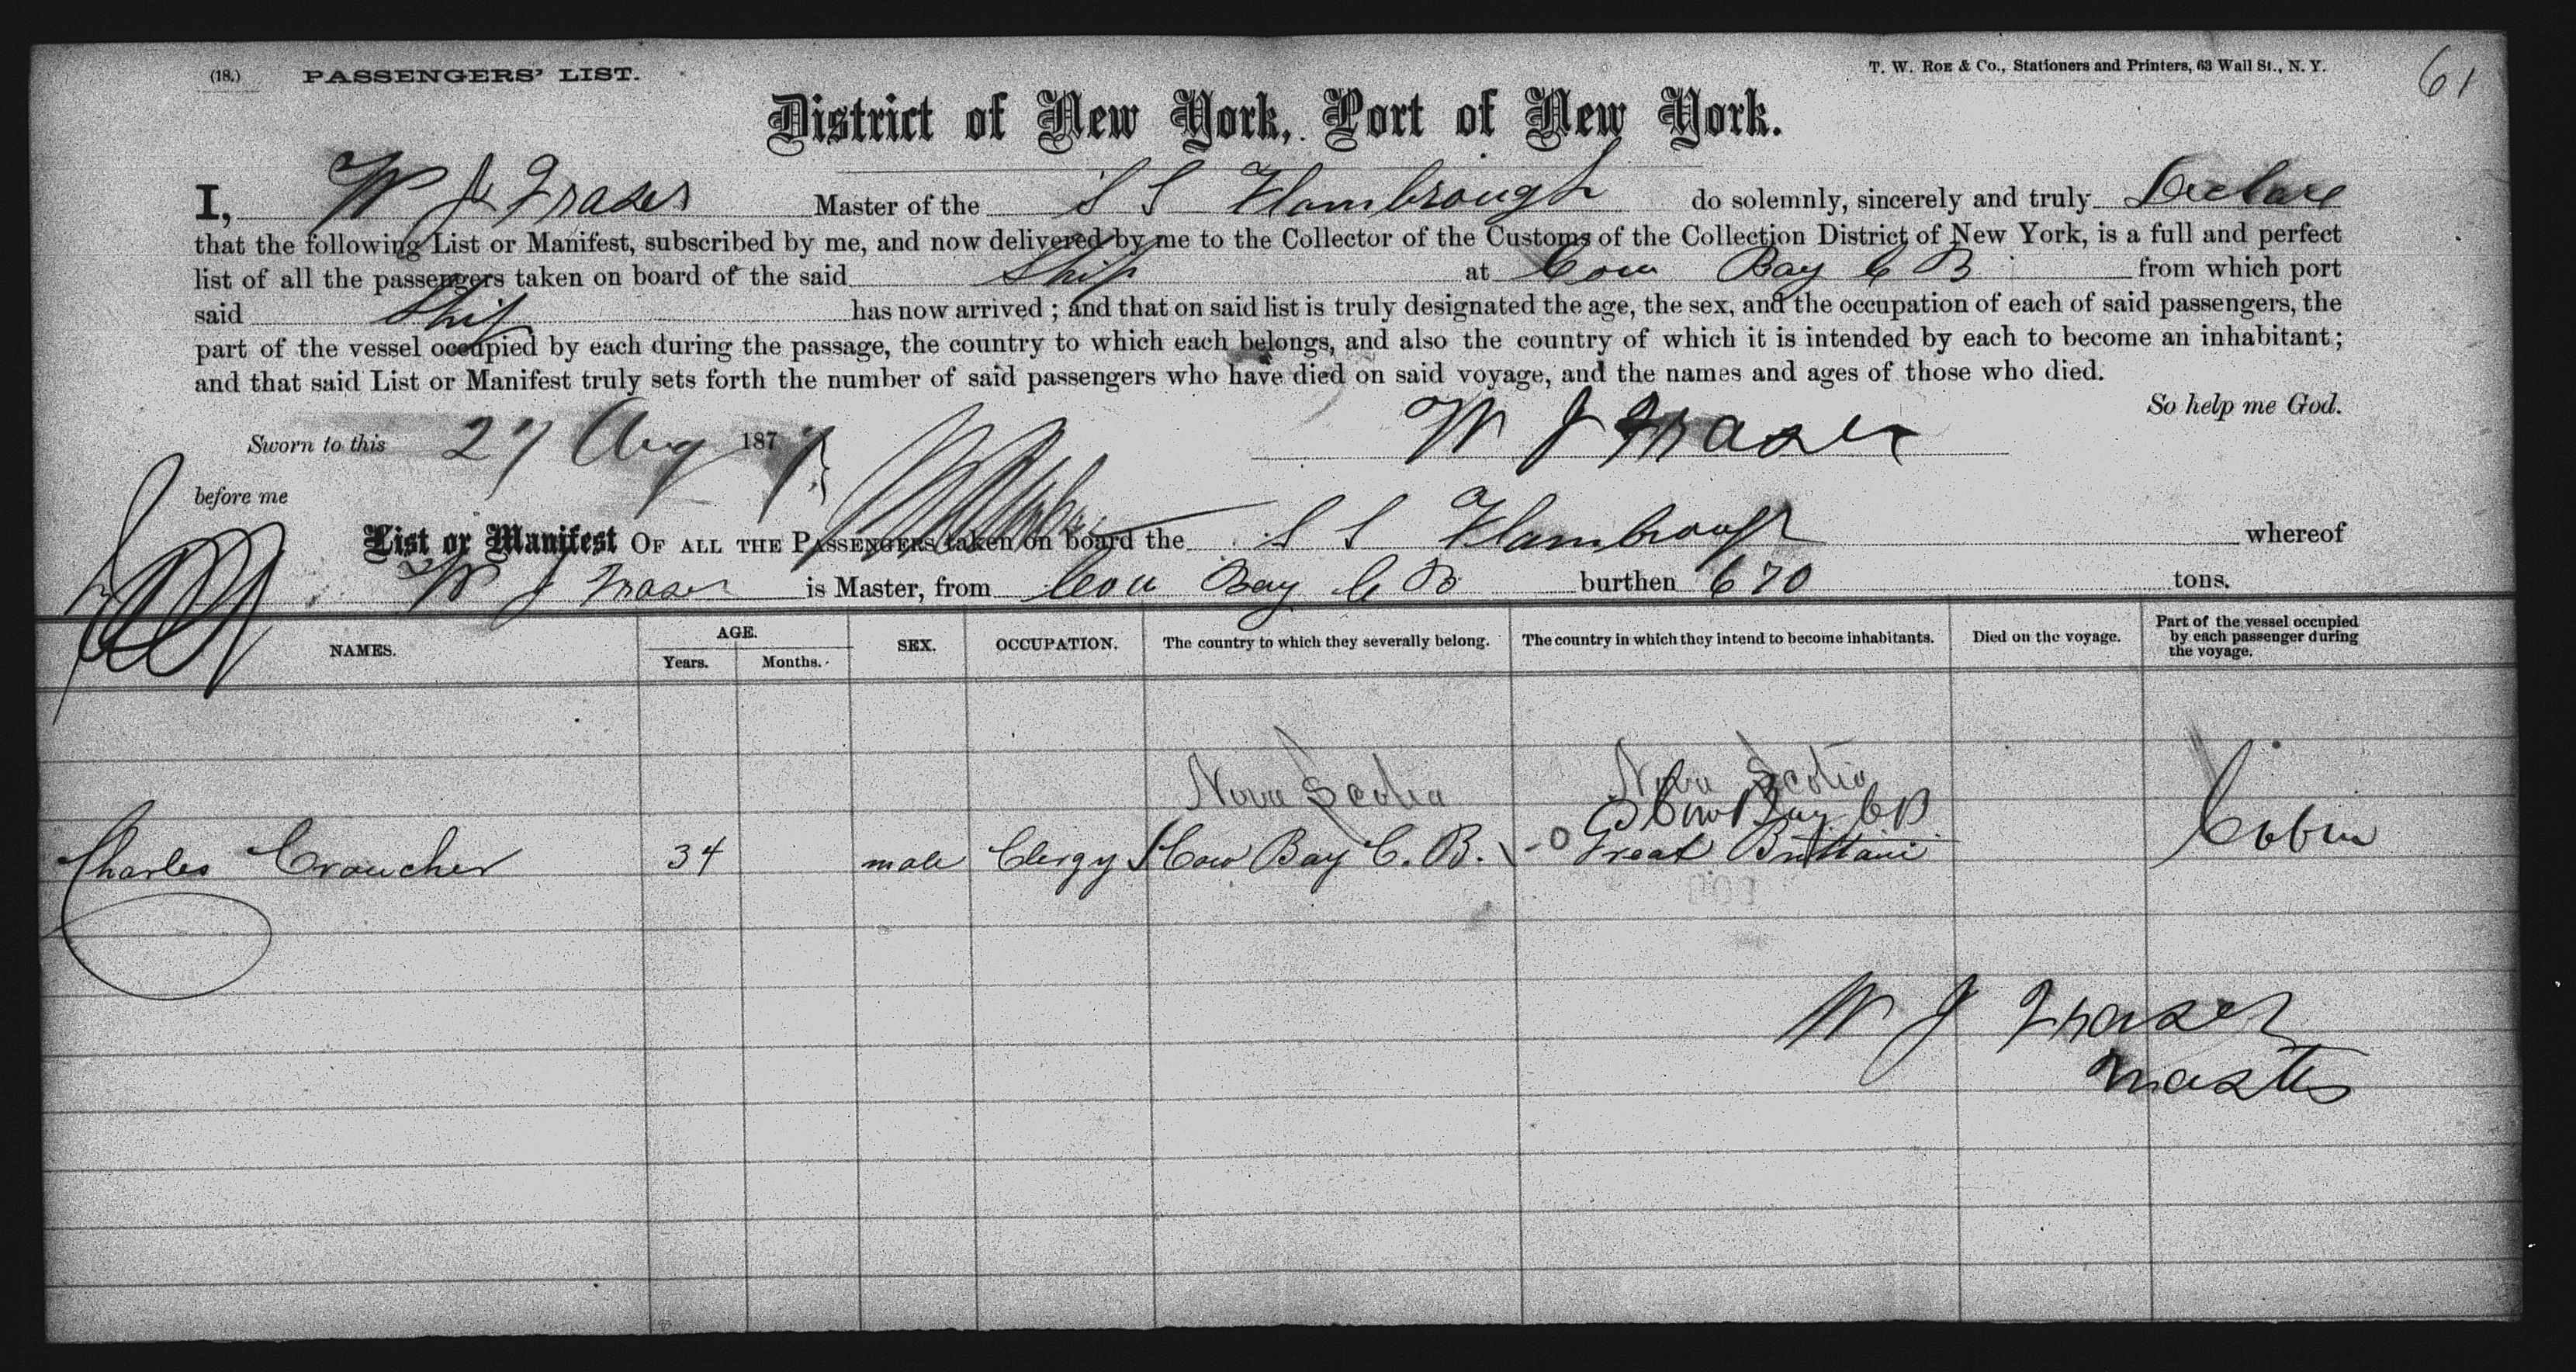 (18.) PASSENGERS' LIST. T. W. ROE & Co., Stationers and Printers, 63 Wall St., N. Y. 61
District of New York, Port of New York.
I, W J Fraser Master of the S S Flambrough do solemnly, sincerely and truly Declare
that the following List or Manifest, subscribed by me, and now delivered by me to the Collector of the Customs of the Collection District of New York, is a full and perfect
list of all the passengers taken on board of the said Ship at Cow Bay C B from which port
said Ship has now arrived ; and that on said list is truly designated the age, the sex, and the occupation of each of said passengers, the
part of the vessel occupied by each during the passage, the country to which each belongs, and also the country of which it is intended by each to become an inhabitant ;
and that said List or Manifest truly sets forth the number of said passengers who have died on said voyage, and the names and ages of those who died.
So help me God.
Sworn to this 27 Aug 1877 W J Fraser
before me
List or Manifest OF ALL THE PASSENGERS taken on board the S S Flambrough whereof
W J Fraser is Master, from Cow Bay C B burthen 670 tons.
NAMES. AGE. Years. Months. SEX. OCCUPATION. The country to which they severally belong. The country in which they intend to become inhabitants. Died on the voyage. Part of the vessel occupied by each passenger during the voyage.
Nova Scotia Nova Scotia
Cow Bay CB
Charles Croucher 34 male Clergy Cow Bay C. B. Great Brittain Cabin
W J Fraser
Master